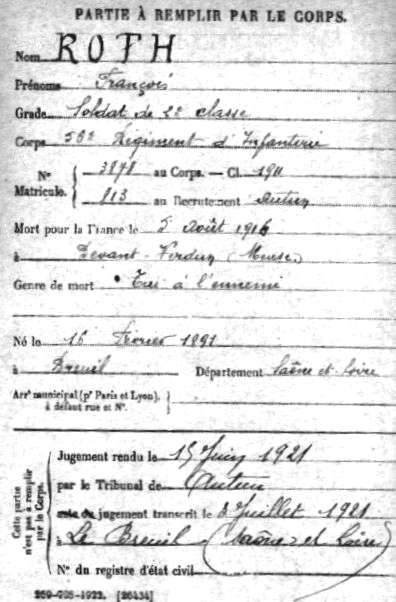 PARTIE À REMPLIR PAR LE CORPS.
Nom ROTH
Prénoms François
Grade Soldat de 2e classe
Corps 56e Régiment d'Infanterie
No Matricule. 3878 au Corps. — Cl. 1911
813 au Recrutement Autun
Mort pour la France le 5 Août 1916
à Devant-Verdun (Meuse.)
Genre de mort Tué à l'ennemi
Né le 16 Février 1891
à Breuil Département Saône-et-Loire
Arrt municipal (pr Paris et Lyon),
à défaut rue et No.
Cette partie
n'est pas à remplir
par le Corps.
Jugement rendu le 15 Juin 1921
par le Tribunal de Autun
jugement transcrit le 8 Juillet 1921
à Le Breuil (Saône-et-Loire)
No du registre d'état civil
[26434]